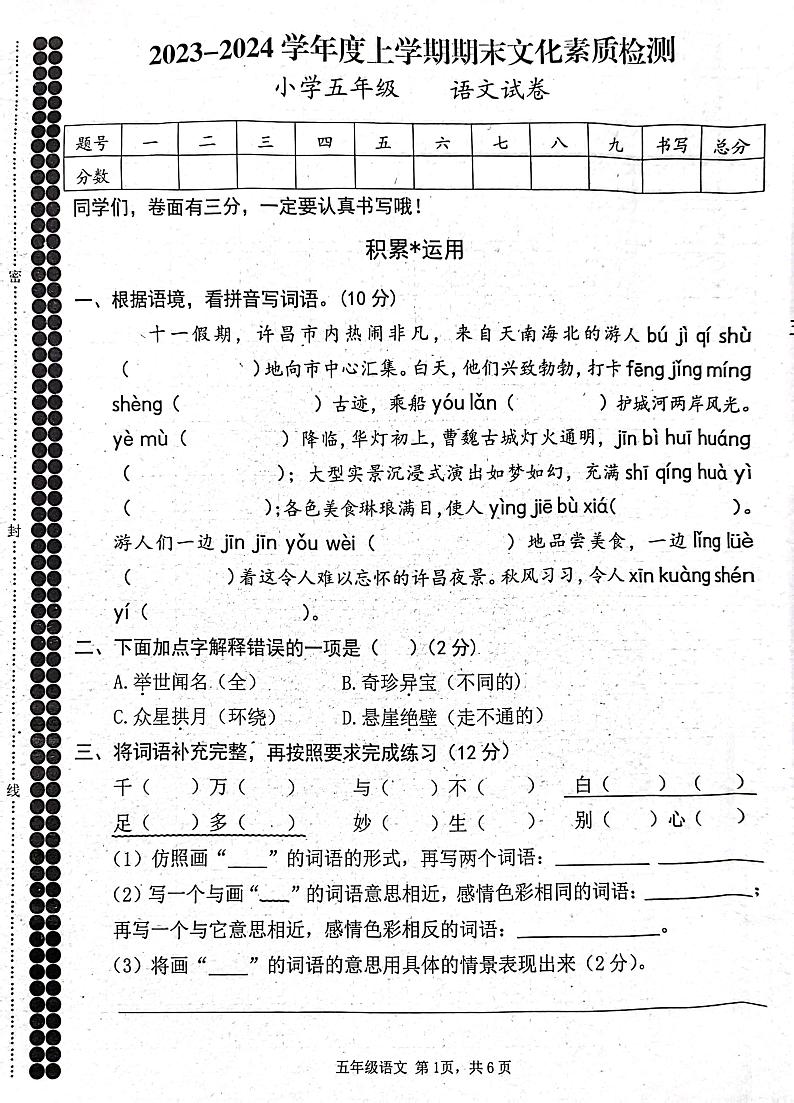 2023-2024学年度上学期期末文化素质检测
小学五年级 语文试卷
题号 一 二 三 四 五 六 七 八 九 书写 总分
分数
同学们，卷面有三分，一定要认真书写哦！
积累*运用
一、根据语境，看拼音写词语。(10分)
十一假期，许昌市内热闹非凡，来自天南海北的游人 bú jì qí shù
（ ）地向市中心汇集。白天，他们兴致勃勃，打卡 fēng jǐng míng
shèng（ ）古迹，乘船 yóu lǎn（ ）护城河两岸风光。
yè mù（ ）降临，华灯初上，曹魏古城灯火通明，jīn bì huī huáng
（ ）；大型实景沉浸式演出如梦如幻，充满 shī qíng huà yì
（ ）；各色美食琳琅满目，使人 yìng jiē bù xiá（ ）。
游人们一边 jīn jīn yǒu wèi（ ）地品尝美食，一边 lǐng lüè
（ ）着这令人难以忘怀的许昌夜景。秋风习习，令人 xīn kuàng shén
yí（ ）。
二、下面加点字解释错误的一项是（ ）(2分)
A.举世闻名（全） B.奇珍异宝（不同的）
C.众星拱月（环绕） D.悬崖绝壁（走不通的）
三、将词语补充完整，再按照要求完成练习（12分）
千（ ）万（ ） 与（ ）不（ ） 白（ ）（ ）
足（ ）多（ ） 妙（ ）生（ ） 别（ ）心（ ）
（1）仿照画“____”的词语的形式，再写两个词语：________ ________
（2）写一个与画“﹏﹏”的词语意思相近，感情色彩相同的词语：________；
再写一个与它意思相近，感情色彩相反的词语：________。
（3）将画“____”的词语的意思用具体的情景表现出来（2分）。
五年级语文 第1页，共6页
密
封
线